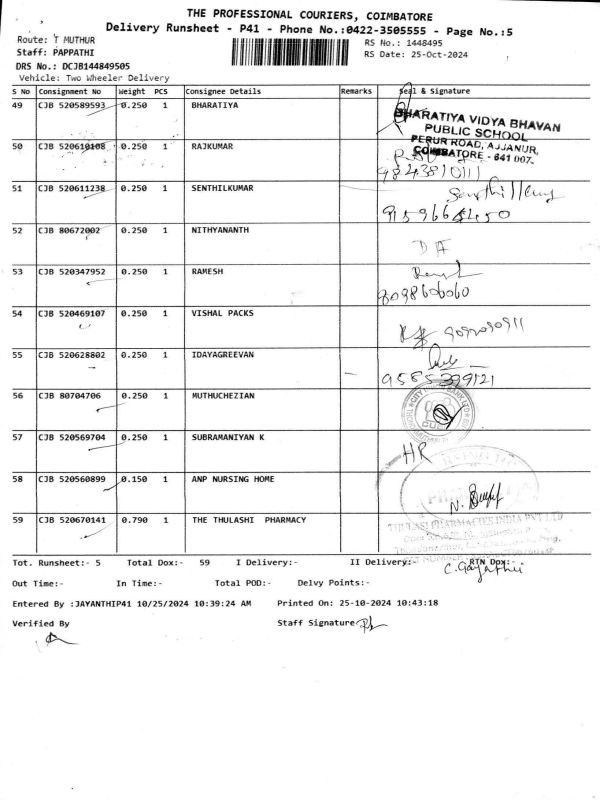 THE PROFESSIONAL COURIERS, COIMBATORE
Delivery Runsheet - P41 - Phone No.:0422-3505555 - Page No.:5
Route: T MUTHUR
RS No.: 1448495
Staff: PAPPATHI
RS Date: 25-Oct-2024
DRS No.: DCJB144849505
Vehicle: Two Wheeler Delivery
S No Consignment No Weight PCS Consignee Details Remarks Seal & Signature
49 CJB 520589593 0.250 1 BHARATIYA
BHARATIYA VIDYA BHAVAN
PUBLIC SCHOOL
PERUR ROAD, AJJANUR,
COIMBATORE - 641 007.
50 CJB 520610108 0.250 1 RAJKUMAR
9843810111
51 CJB 520611238 0.250 1 SENTHILKUMAR
52 CJB 80672002 0.250 1 NITHYANANTH
53 CJB 520347952 0.250 1 RAMESH
8098606060
54 CJB 520469107 0.250 1 VISHAL PACKS
9092090911
55 CJB 520628802 0.250 1 IDAYAGREEVAN
9585399121
56 CJB 80704706 0.250 1 MUTHUCHEZIAN
CUB
57 CJB 520569704 0.250 1 SUBRAMANIYAN K
HR
58 CJB 520560899 0.150 1 ANP NURSING HOME
59 CJB 520670141 0.790 1 THE THULASHI PHARMACY
THULASI PHARMACIES INDIA PVT LTD
Tot. Runsheet:- 5 Total Dox:- 59 I Delivery:- II Delivery:- RTN Dox:-
C. Gayathri
Out Time:- In Time:- Total POD:- Delvy Points:-
Entered By :JAYANTHIP41 10/25/2024 10:39:24 AM Printed On: 25-10-2024 10:43:18
Verified By Staff Signature